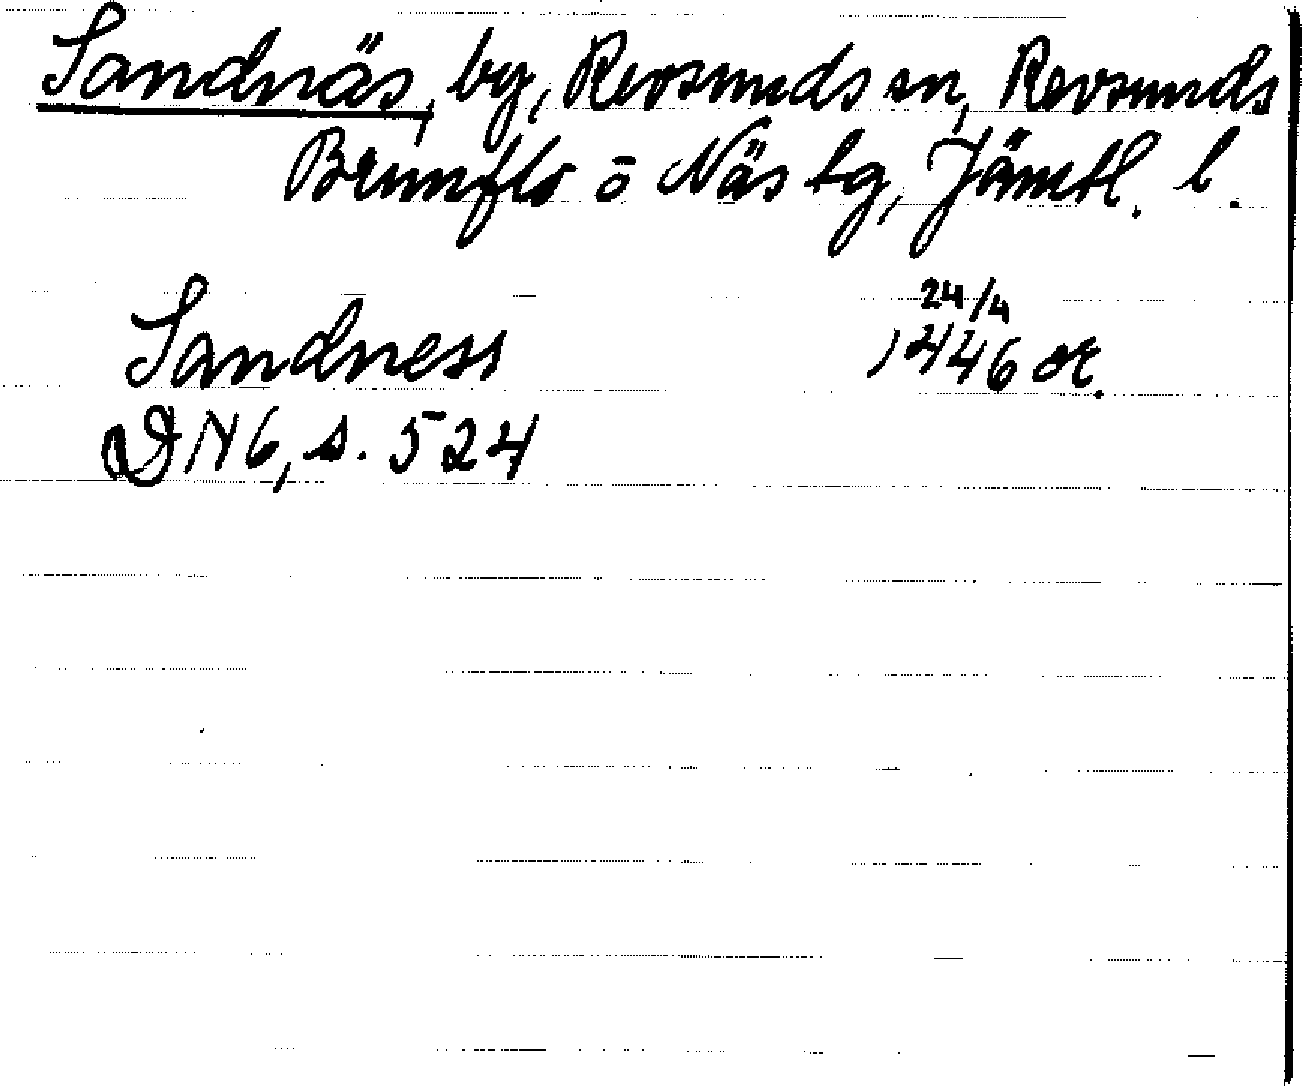 Sandnäs, by, Revsunds sn, Revsunds
Brunflo o Näs tg, Jämtl. l.
Sandness 24/4
1446 or.
DN 6, s. 524